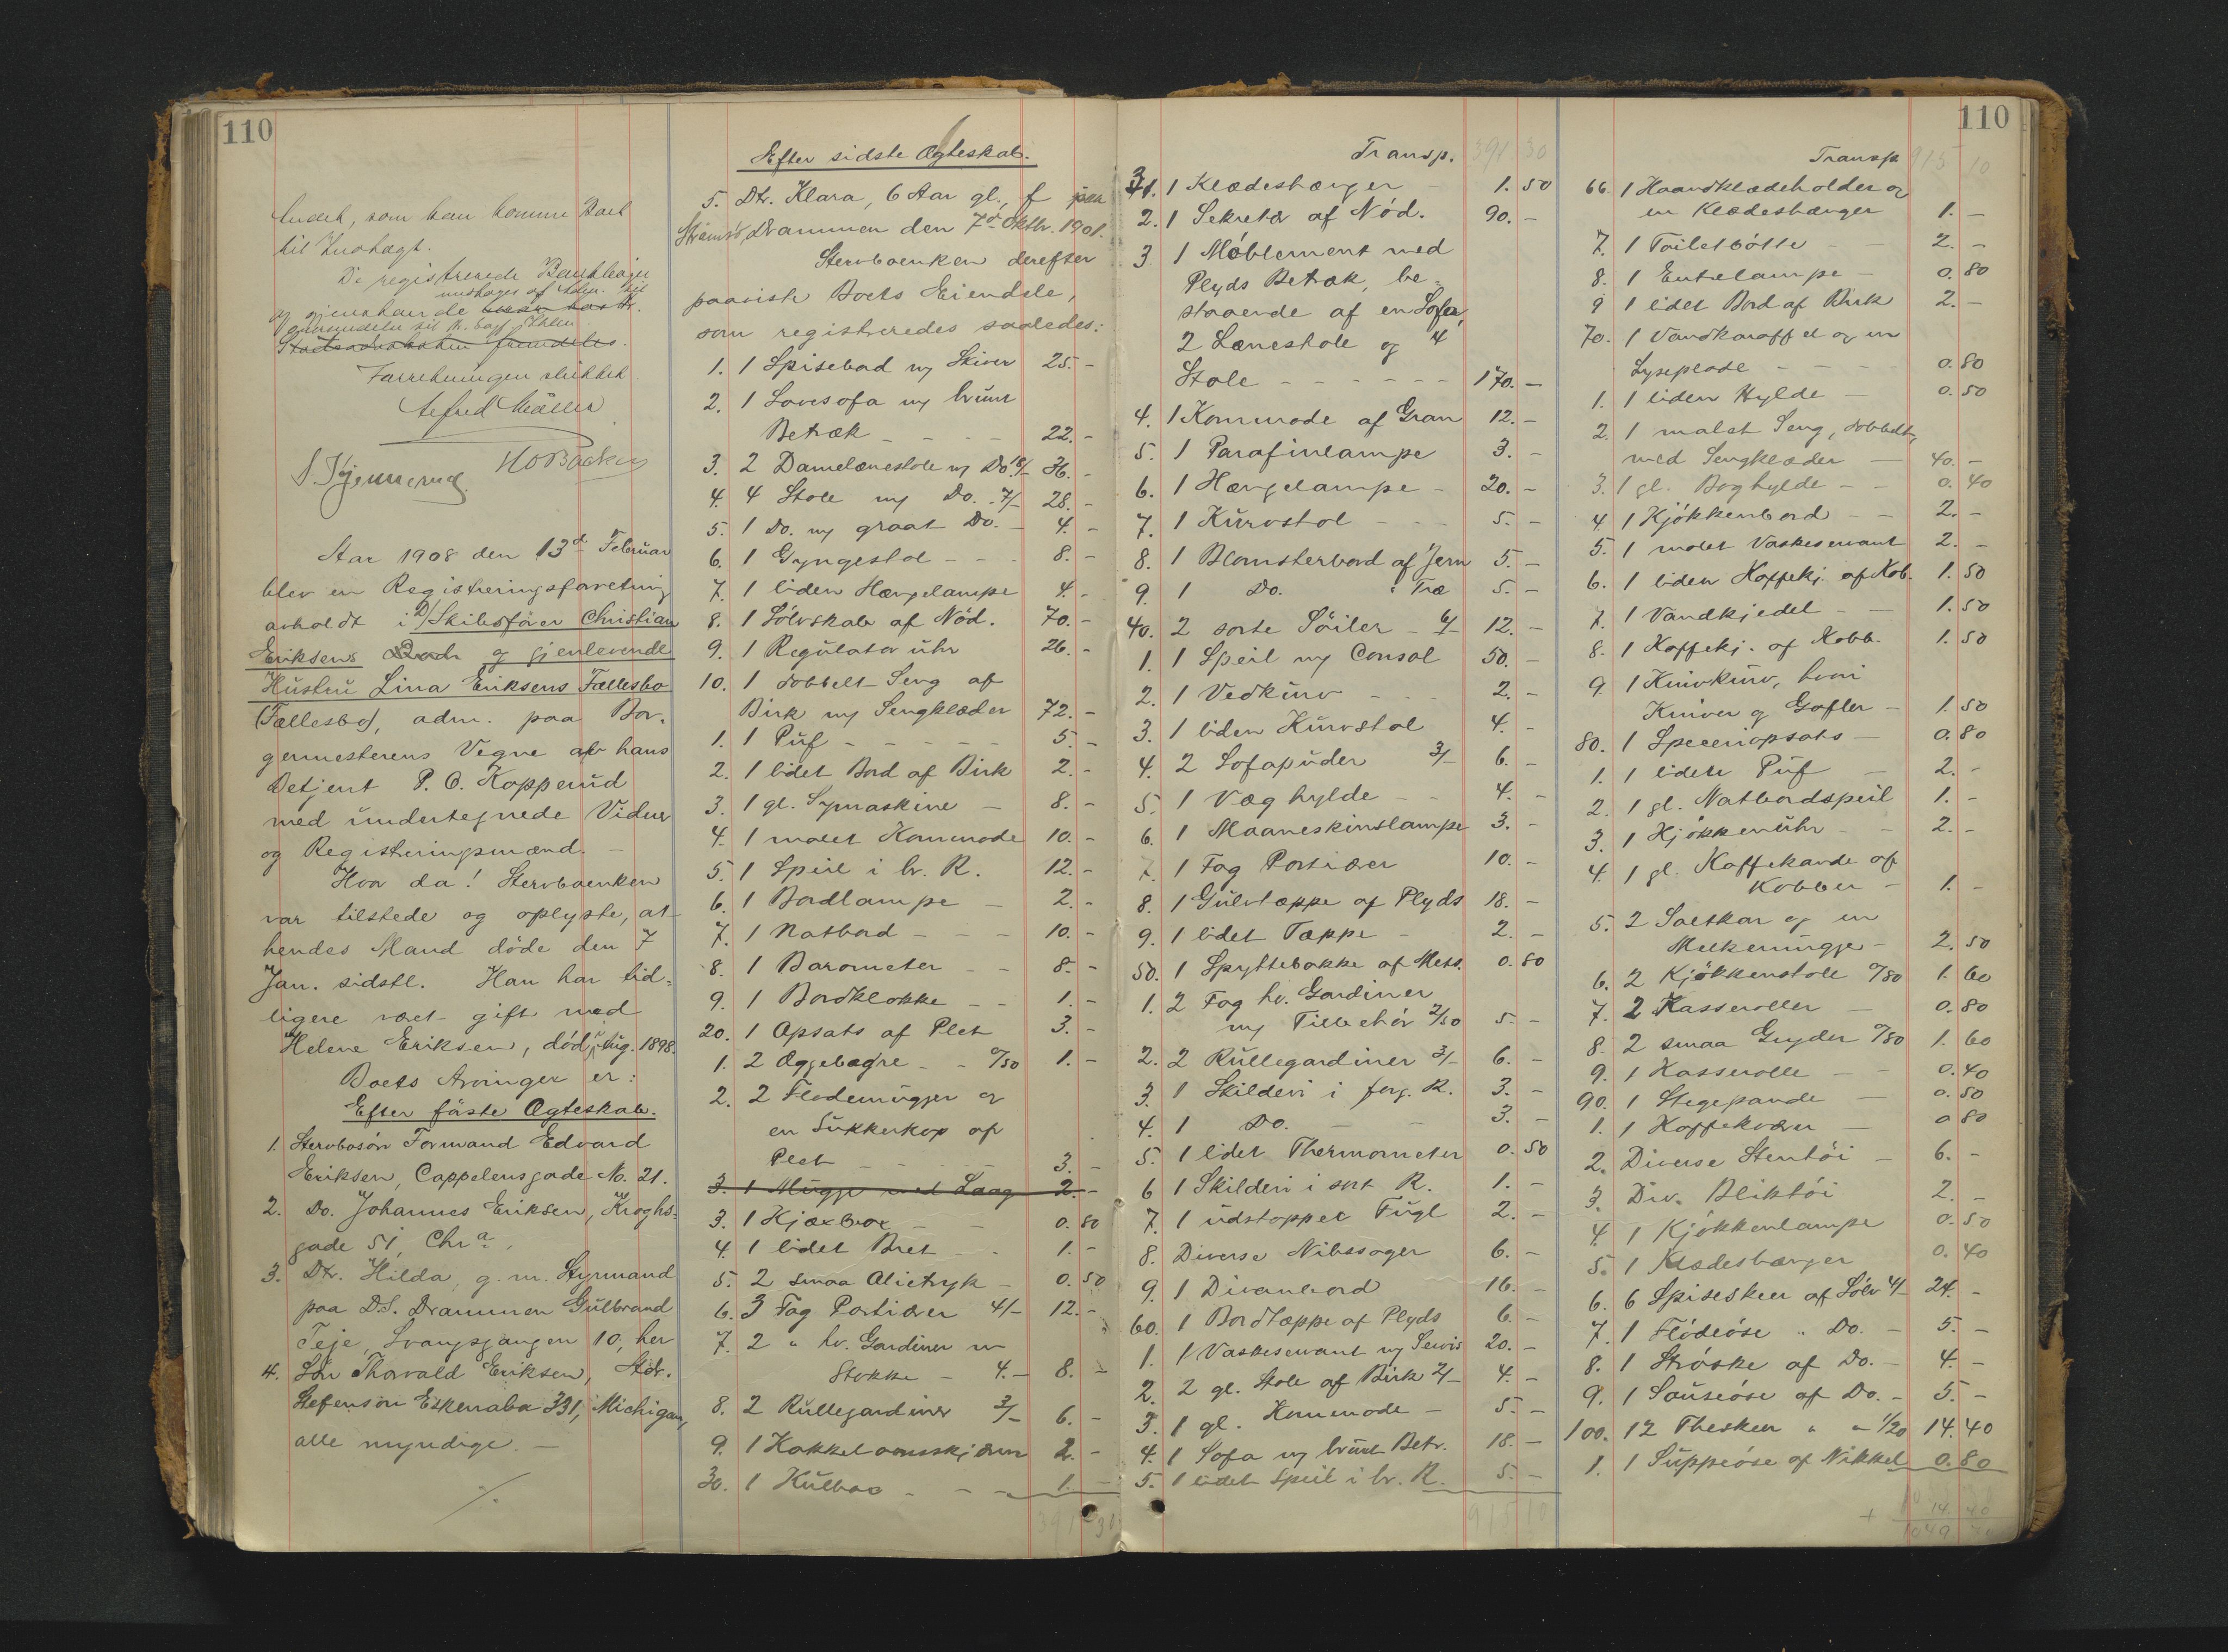 110
andet, som kan komme Boet
til Indtægt.
De registrerede
modtages af Adm. til
og gjenhavende
Forretningen sluttet.
Alfred Møller
Aar 1908 den 13de Februar
blev en Registreringsforretning
avholdt i D/Skibsfører Christian
Eriksens og gjenlevende
Hustru Lina Eriksens Fællesbo
(Fællesbo), adm. paa Bor-
germesterens Vegne af hans
Betjent P. O. Kopperud
med undertegnede Vidner
og Registreringsmænd. -
Hvor da! Stervboenken
var tilstede og oplyste, at
hendes Mand døde den 7
Jan. sidstl. Han har tid-
ligere været gift med
Helene Eriksen, død i Aug. 1898.
Boets Arvinger er:
Efter første Ægteskab.
1. Stervbosøn Formand Edvard
Eriksen, Cappelensgade No. 21.
2. Do. Johannes Eriksen, Kroghs-
gade 51, Chra.,
3. Dtr. Hilda, g. m. Styrmand
paa D.S. Drammen Gulbrand
Teje, Svangsgangen 10, her
4. Søn Thorvald Eriksen, Adr.
Stefenson Eskenaba 331, Michigan,
alle myndige. -
./.
Efter sidste Ægteskab.
5. Dtr. Klara, 6 Aar gl., f. paa
Strømsø, Drammen den 7de Oktbr. 1901.
Stervboenken derefter
paaviste Boets Eiendele,
som registreredes saaledes:
1. 1 Spisebord m/ Skiver 25. -
2. 1 Sovesofa m/ brunt
Betræk - - - - 22. -
3. 2 Damelænestole m/ Do. 18/- 36. -
4. 4 Stole m/ Do. 7/- 28. -
5. 1 Do. m/ graat Do. - 4. -
6. 1 Gyngestol - - - 8. -
7. 1 liden Hængelampe 4. -
8. 1 Sølvskab af Nød. 70. -
9. 1 Regulator uhr 26. -
10. 1 dobbelt Seng af
Birk m/ Sengklæder 72. -
1. 1 Puf - - - - - 5. -
2. 1 lidet Bord af Birk 2. -
3. 1 gl. Symaskine - 8. -
4. 1 malet Kommode 10. -
5. 1 Speil i br. R. 12. -
6. 1 Bordlampe - 2. -
7. 1 Natbord - - - 10. -
8. 1 Barometer - - 8. -
9. 1 Bordklokke - - 1. -
20. 1 Opsats af Plet 3. -
1. 2 Æggebægre - - 0/50 1. -
2. 2 Flødemugger og
en Sukkerkop af
Plet - - - - - 3. -
3. 1 Mugge med Laag 2. -
3. 1 Kjæxbox - - 0. 80
4. 1 lidet Bret - - 1. -
5. 2 smaa Olietryk - 0. 50
6. 3 Fag Portiører 4/- 12. -
7. 2 " hv. Gardiner m
Stokke - 4. - 8. -
8. 2 Rullegardiner 3/- 6. -
9. 1 Kakkelovnsskjærm 2. -
30. 1 Kulbox - - - 1. -
391 30
Transp. 391 30
31. 1 Klædeshænger - 1. 50
2. 1 Sekretær af Nød. 90. -
3 1 Møblement med
Plyds Betræk, be-
staaende af en Sofa,
2 Lænestole og 4
Stole - - - - - - 170. -
4. 1 Kommode af Gran 12. -
5. 1 Parafinlampe 3. -
6. 1 Hængelampe - 20. -
7. 1 Kurvstol - - - 5. -
8. 1 Blomsterbord af Jern 5. -
9. 1 Do. " Træ 5. -
40. 2 sorte Søiler - 6/- 12. -
1. 1 Speil m/ Consol 50. -
2. 1 Vedkurv - - - 2. -
3. 1 liden Kurvstol 4. -
4. 2 Sofapuder 3/- 6. -
5. 1 Væghylde - - 4. -
6. 1 Maaneskinslampe 3. -
7. 1 Fag Portiører 10. -
8. 1 Gulvtæppe af Plyds 18. -
9. 1 lidet Tæppe - 2. -
50. 1 Spyttebakke af Mess. 0. 80
1. 2 Fag hv. Gardiner
m/ Tilbehør 2/50 5. -
2. 2 Rullegardiner 3/- 6. -
3. 1 Skilderi i forg. R. 3. -
4. 1 Do. - - 3. -
5. 1 lidet Thermometer 0. 50
6 1 Skilderi i sort R. 1. -
7. 1 udstoppet Fugl 2. -
8. Diverse Nipssager 6. -
9. 1 Divanbord 16. -
60. 1 Bordtæppe af Plyds 6. -
1. 1 Vaskeservant m/ Servis 20. -
2. 2 gl. Stole af Birk 2/- 4. -
3. 1 gl. Kommode - 5. -
4. 1 Sofa m/ brunt Betr. 18. -
5. 1 lidet Speil i br. R. 5. -
915 10
110
Transp. 915 10
66. 1 Haandklædeholder og
en Klædeshænger 1. -
7. 1 Toiletbøtte - 2. -
8. 1 Entrelampe - 0. 80
9 1 lidet Bord af Birk 2. -
70. 1 Vandkaraffel og en
Lyseplade - - - - 0. 80
1. 1 liden Hylde - 0. 50
2. 1 malet Seng, dobbelt,
med Sengklæder - 40. -
3. 1 gl. Boghylde - - 0. 40
4. 1 Kjøkkenbord - - 2. -
5. 1 malet Vaskeservant 2. -
6. 1 liden Kaffekj. af Kob. 1. 50
7. 1 Vandkjedel - - 1. 50
8. 1 Kaffekj. af Kobb. 1. 50
9. 1 Knivkurv, hvori
Kniver og Gafler - 1. 50
80. 1 Speceriopsats - 0. 80
1. 1 liden Puf - 2. -
2. 1 gl. Natbordspeil 1. -
3. 1 Kjøkkenuhr - - 2. -
4. 1 gl. Kaffekande af
Kobber - 1. -
5. 2 Saltkar og en
Melkemugge - 2. 50
6. 2 Kjøkkenstole 0/80 1. 60
7. 2 Kasseroller - 0. 80
8. 2 smaa Gryder 0/80 1. 60
9. 1 Kasserolle - - 0. 40
90. 1 Stegepande - 0. 50
1. 1 Kaffekværn - 0 80
2. Diverse Stentøi - 6. -
3. Div. Bliktøi 2. -
4. 1 Kjøkkenlampe 0. 50
5. 1 Klædeshænger 0. 40
6. 6 Spiseskeer af Sølv 4/- 24. -
7. 1 Flødeøse " Do. - 5. -
8. 1 Strøske af Do. - 4. -
9. 1 Sauseøse af Do. - 5. -
100. 12 Theskeer " " 1/20 14. 40
1. 1 Suppeøse af Nikkel 0. 80
14. 40